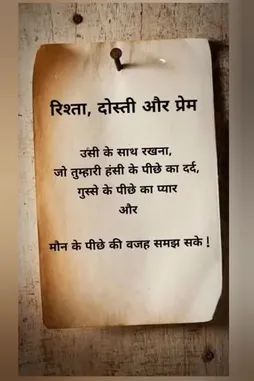 रिश्ता, दोस्ती और प्रेम
उसी के साथ रखना,
जो तुम्हारी हंसी के पीछे का दर्द,
गुस्से के पीछे का प्यार
और
मौन के पीछे की वजह समझ सके !